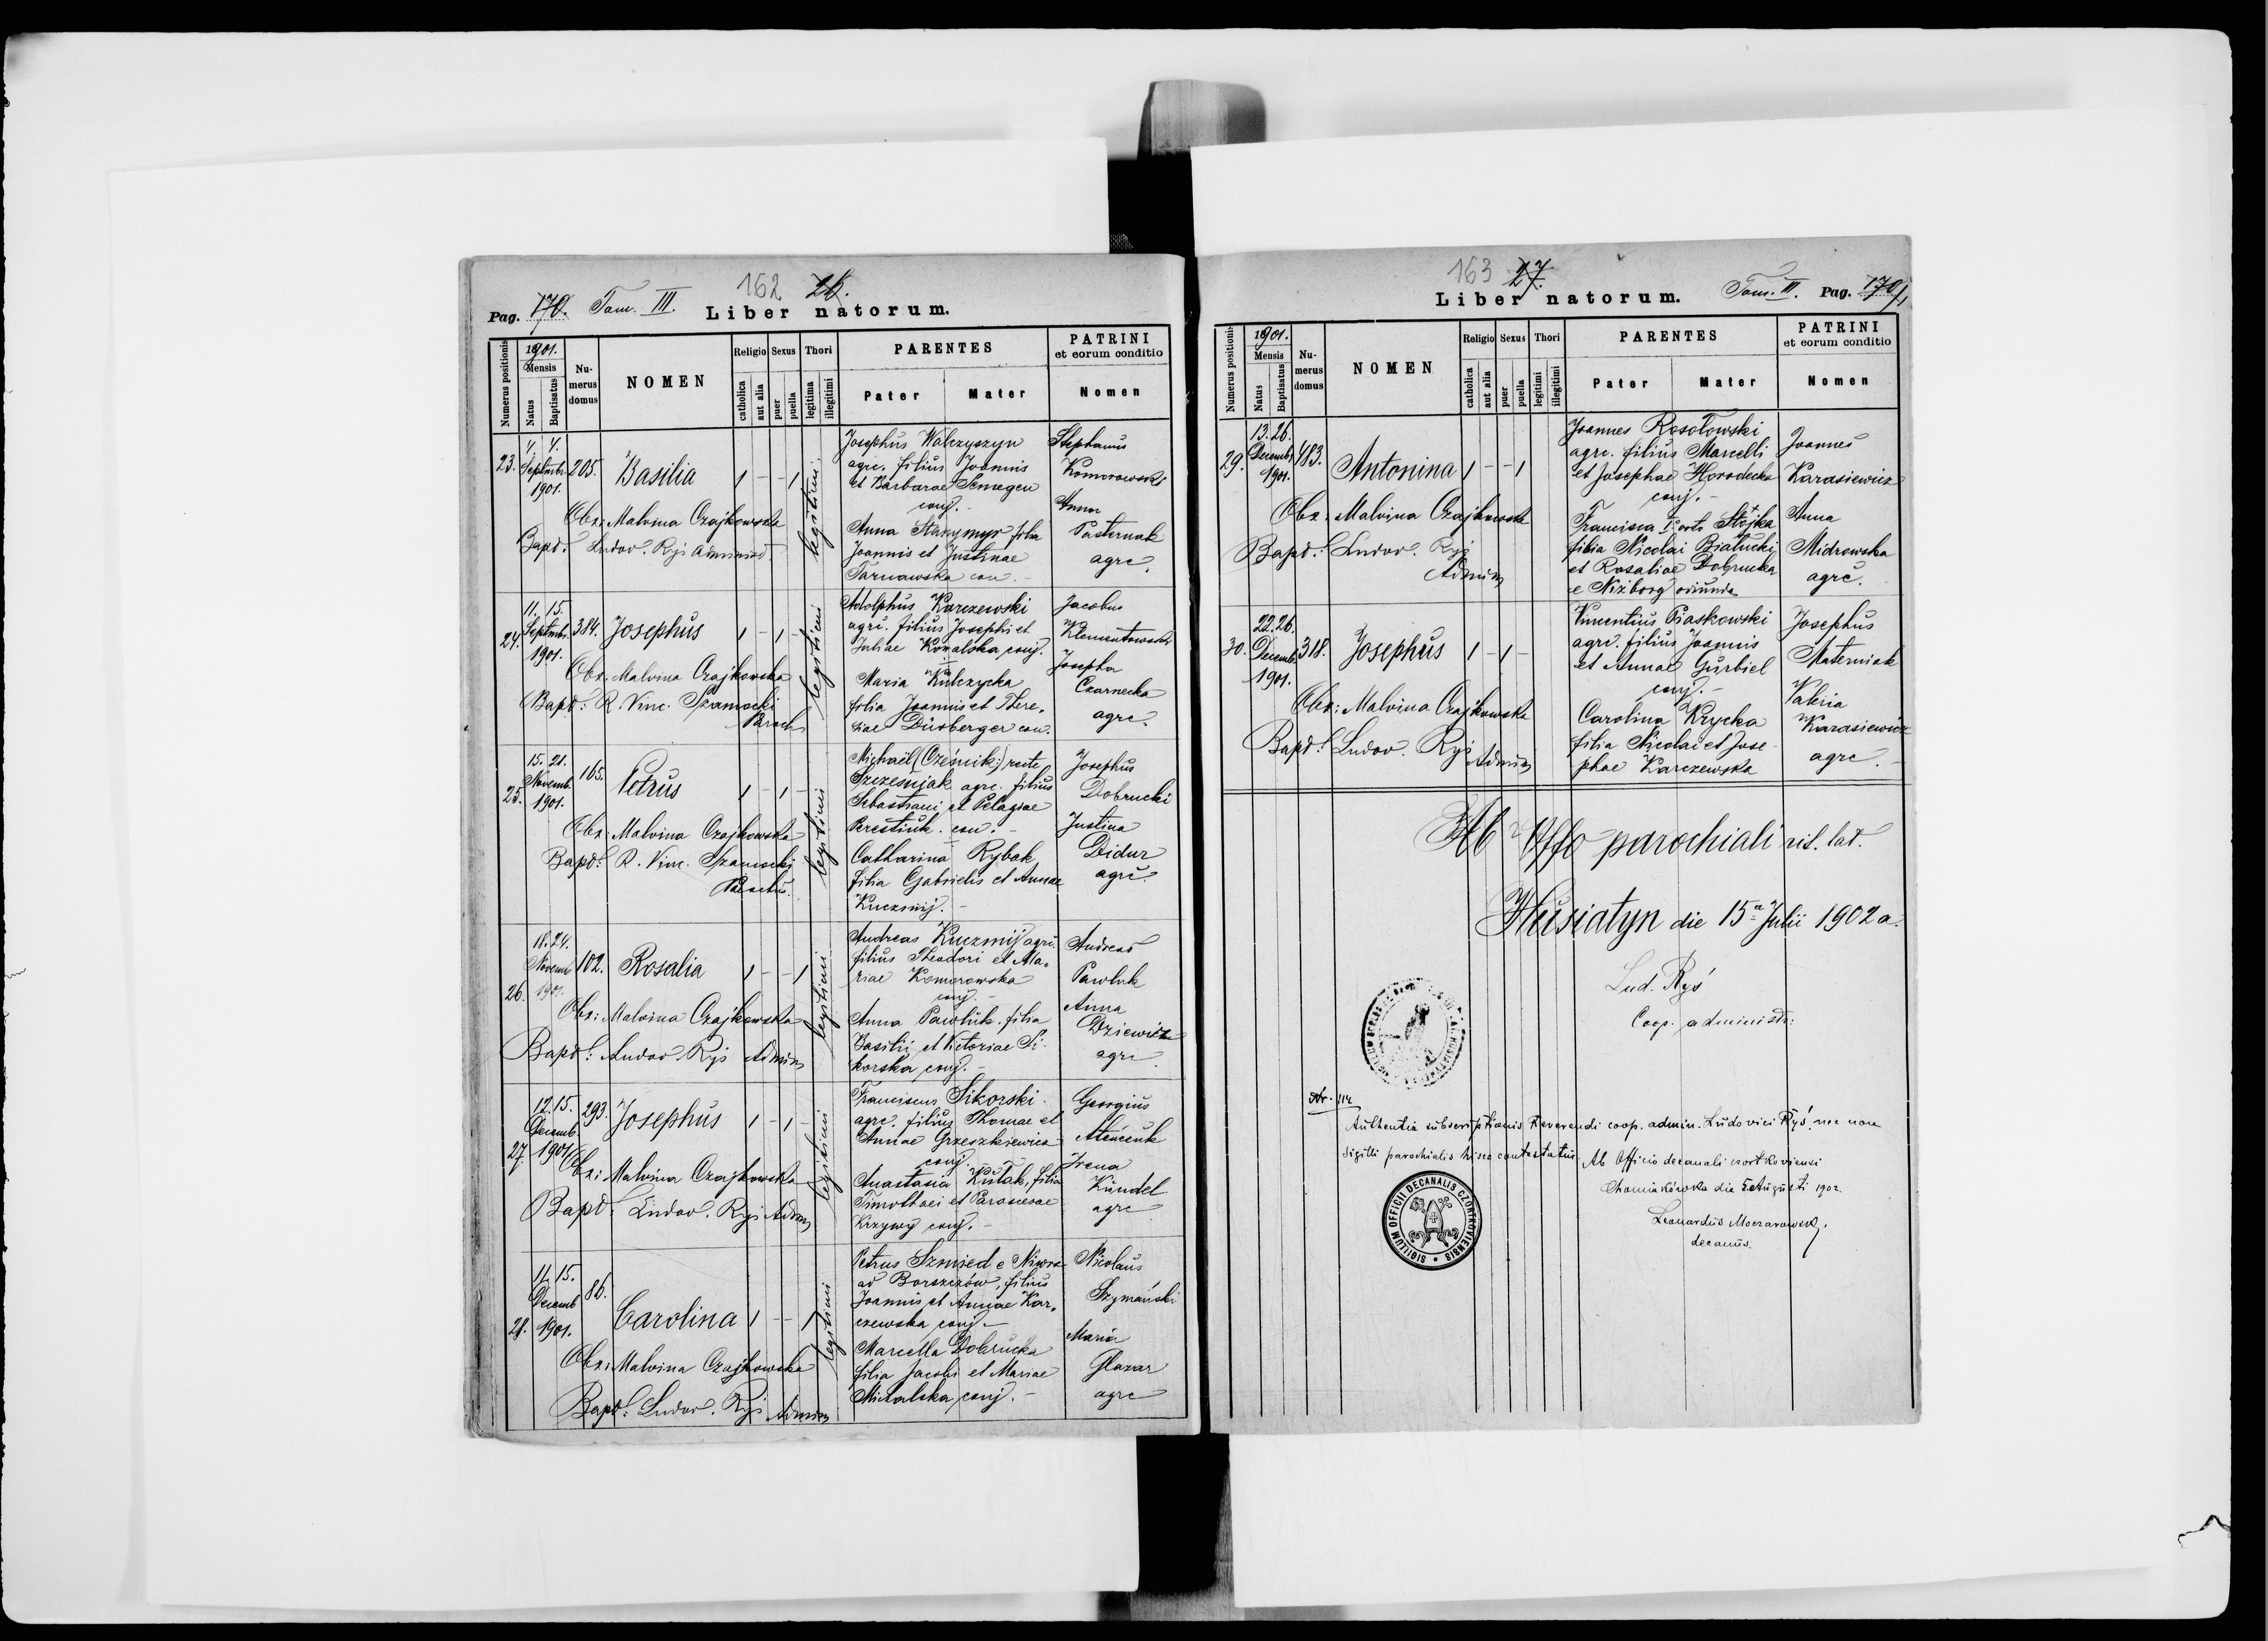 162 26.
Pag. 170. Tom. III. Liber natorum.
Numerus positionis
1901.
Mensis
Natus
Baptisatus
Numerus domus
NOMEN
Religio
catholica
aut alia
Sexus
puer
puella
Thori
legitima
illegitimi
PARENTES
Pater
Mater
PATRINI
et eorum conditio
Nomen
23. 4. 7. Septmb. 1901. 205. Basilia 1 - - 1 legitimi
Obs: Malvina Czajkowska
Bapt: Ludov. Ryś Administ.
Josephus Walczyszyn
agrc. filius Joannis
et Barbarae Semegen
conj. -
Anna Stanymyr filia
Joannis et Justinae
Tarnawska con. -
Stephanus
Komorowski
Anna
Pasternak
agrc.
24. 11. 15. Septmb. 1901. 384. Josephus 1 - 1 - legitimi
Obs: Malvina Czajkowska
Bapt: R. Vinc. Szamocki
Paroch
Adolphus Karczewski
agrc. filius Josephi et
Juliae Kowalska conj.
Maria Kulczycka
filia Joannis et There-
siae Dürberger con.
Jacobus
Klementowski
Josepha
Czarnecka
agrc.
25. 15. 21. Novemb. 1901. 165. Petrus 1 - 1 - legitimi
Obs: Malvina Czajkowska
Bapt: R. Vinc. Szamocki
Parochus.
Michaël (Cześnik:) recte
Szcześnjak agrc. filius
Sebastiani et Pelagiae
Perestiuk. con. -
Catharina Rybak,
filia Gabrielis et Annae
Kuczmij. -
Josephus
Dobrucki
Justina
Didur
agrc.
26. 18. 24. Novemb 1901. 102. Rosalia 1 - - 1 legitimi
Obs: Malvina Czajkowska
Bapt: Ludov. Ryś Admin
Andreas Kuczmij agrc.
filius Theodori et Ma-
riae Komorowska
conj. -
Anna Pawluk, filia
Basilii et Victoriae Si-
korska conj. -
Andreas
Pawluk
Anna
agrc.
27. 12. 15. Decemb. 1901 293. Josephus 1 - 1 - legitimi
Obs: Malvina Czajkowska
Bapt: Ludov. Ryś Admin
Franciscus Sikorski
agrc. filius Thomae et
Annae Grzeszkiewicz
conj. -
Anastasia Kutak, filia
Timothaei et Parascevae
Krzywy conj. -
Georgius
Irena
Kündel
agrc
28. 11. 15. Decemb 1901. 86. Carolina 1 - - 1 legitimi
Obs: Malvina Czajkowska
Bapt: Ludov. Ryś Admin
Petrus Szmied e Niwra
ad Borszczów, filius
Joannis et Annae Kar-
czewska conj. -
Marcella Dobrucka
filia Jacobi et Mariae
Michalska conj. -
Nicolaus
Szymański
Maria
Glazar
agrc
163 27.
Liber natorum. Tom. III. Pag. 170/1
Numerus positionis
1901.
Mensis
Natus
Baptisatus
Numerus domus
NOMEN
Religio
catholica
aut alia
Sexus
puer
puella
Thori
legitimi
illegitimi
PARENTES
Pater
Mater
PATRINI
et eorum conditio
Nomen
29. 13. 26. Decemb. 1901. 183. Antonina 1 - - 1
Obs: Malvina Czajkowska
Bapt: Ludov. Ryś
Admin
Joannes Rosołowski
agrc. filius Marcelli
et Josephae Horodecka
conj. -
Francisca I° voto Stojka
filia Nicolai Białucki
et Rosaliae Dobrucka
e Niżborg oriunda
Joannes
Karasiewicz
Anna
Midrowska
agrc.
30. 22. 26. Decemb. 1901. 318. Josephus 1 - 1 -
Obs: Malvina Czajkowska
Bapt: Ludov. Ryś Admin
Vincentius Piaskowski
agrc. filius Joannis
et Annae Gurbiel
conj. -
Carolina Krycka
filia Nicolai et Jose-
phae Karczewska
Josephus
Materniak
Valeria
Karasiewicz
agrc. -
Ab Offo parochiali rit. lat.
Husiatyn die 15ᵃ Julii 1902 a.
Lud. Ryś
Coop. administr:
Nr. 114
Authentia subscriptionis Reverendi coop. admin. Ludovici Ryś, nec non
sigilli parochialis hisce contestatur. Ab Officio decanali czortkoviensi
Chomiakówka die 5. Augusti 1902.
Leonardus Moczarowski,
decanus.
SIGILLUM OFFICII DECANALIS CZORTKOVIENSIS